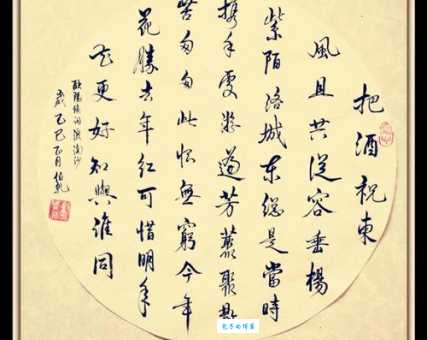 把酒祝東
風且共從容垂楊
紫陌洛城東總是當時
携手處游遍芳叢聚散
苦匆匆此恨無窮今年
花勝去年紅可惜明年
花更好知與誰同
歐陽修詞浪淘沙
歲乙巳正月